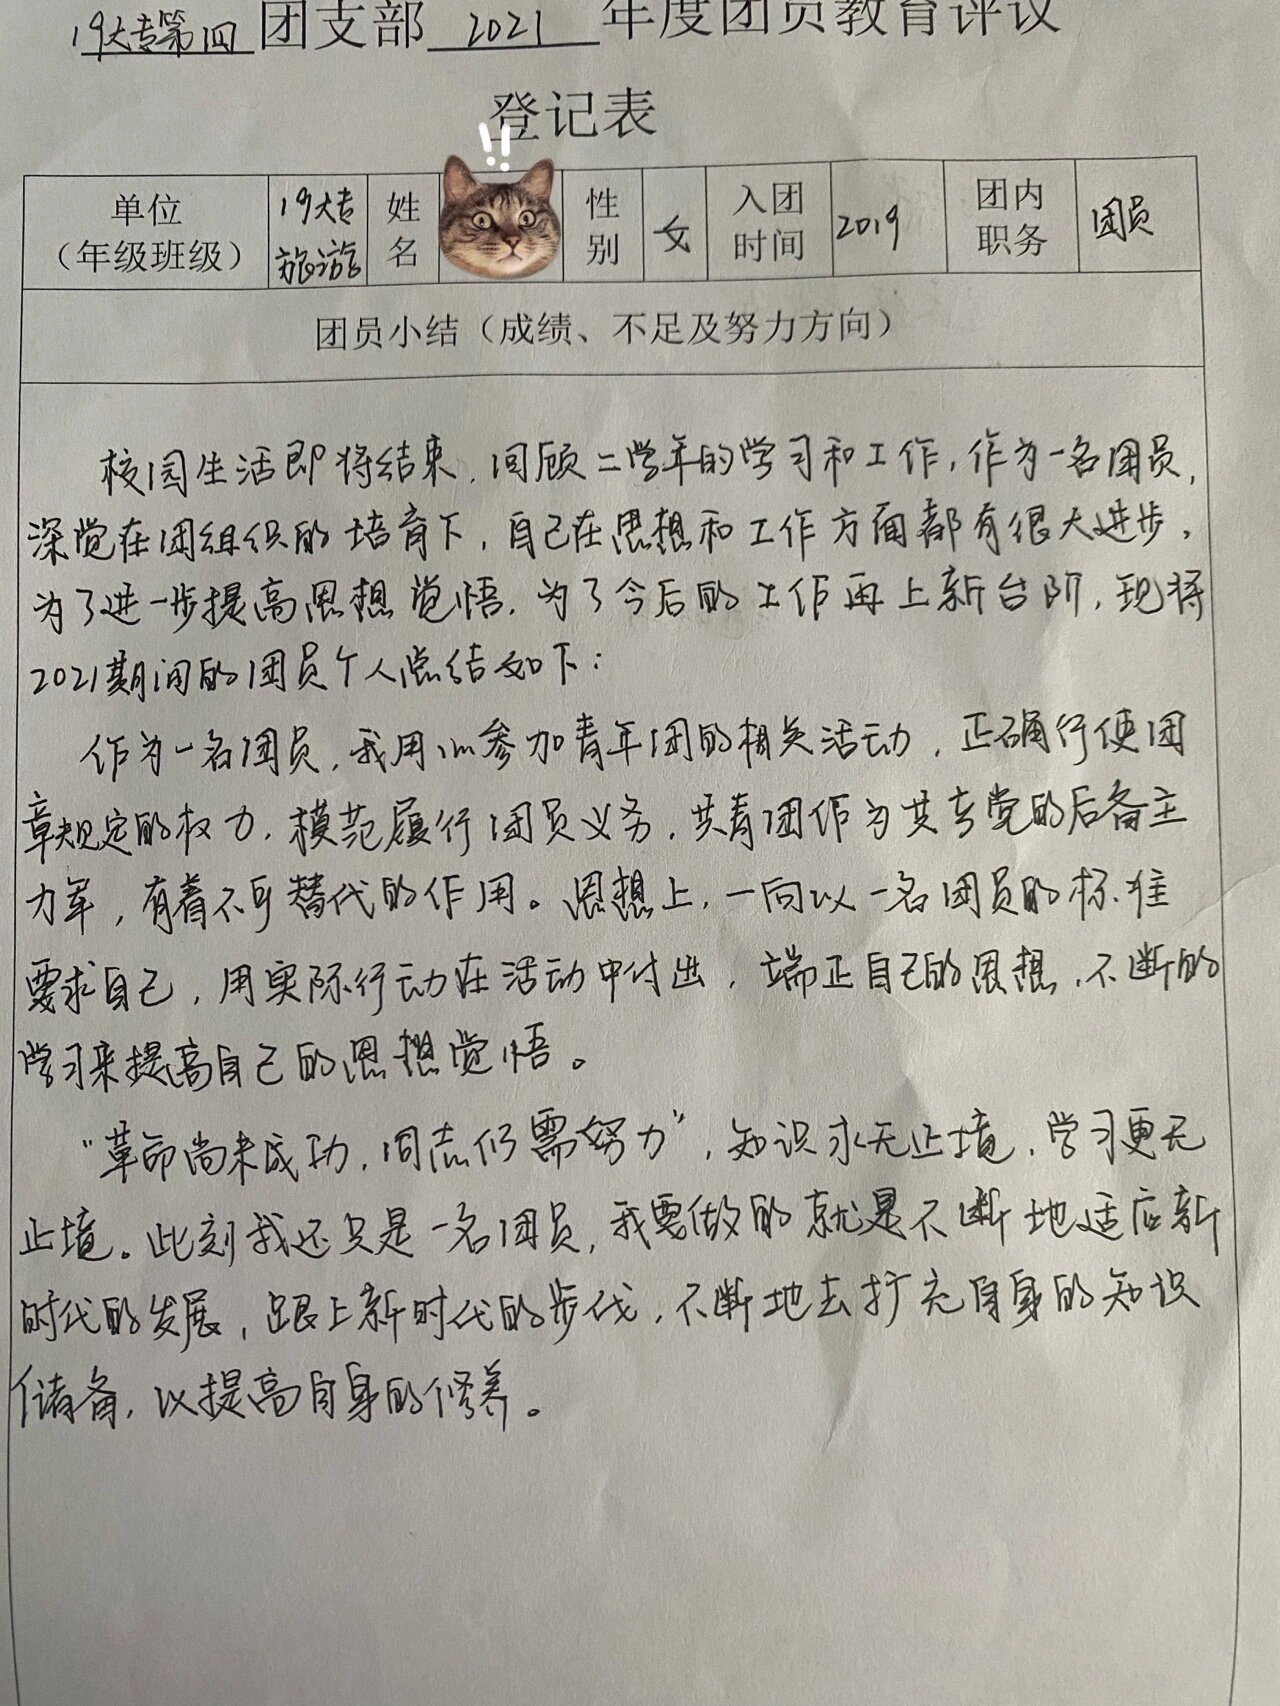 19大专第四团支部2021年度团员教育评议
登记表
单位
(年级班级)
19大专
旅游
姓
名
!!
性
别
女
入团
时间
2019
团内
职务
团员
团员小结（成绩、不足及努力方向）
校园生活即将结束，回顾二学年的学习和工作，作为一名团员，
深觉在团组织的培育下，自己在思想和工作方面都有很大进步，
为了进一步提高思想觉悟，为了今后的工作再上新台阶，现将
2021期间的团员个人总结如下：
作为一名团员，我用心参加青年团的相关活动，正确行使团
章规定的权力，模范履行团员义务，共青团作为共产党的后备主
力军，有着不可替代的作用。思想上，一向以一名团员的标准
要求自己，用实际行动在活动中付出，端正自己的思想，不断的
学习来提高自己的思想觉悟。
“革命尚未成功，同志仍需努力”，知识永无止境，学习更无
止境。此刻我还只是一名团员，我要做的就是不断地适应新
时代的发展，跟上新时代的步伐，不断地去扩充自身的知识
储备，以提高自身的修养。